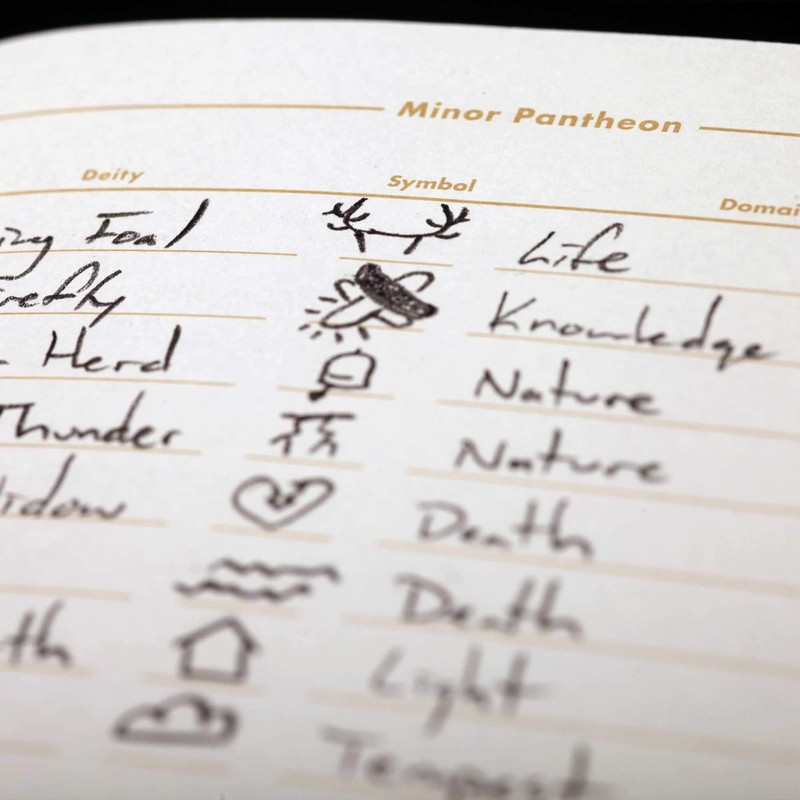 Minor Pantheon
Deity Symbol Domai
ing Foal Life
refly Knowledge
Herd Nature
Thunder Nature
idow Death
Death
th Light
Tempest